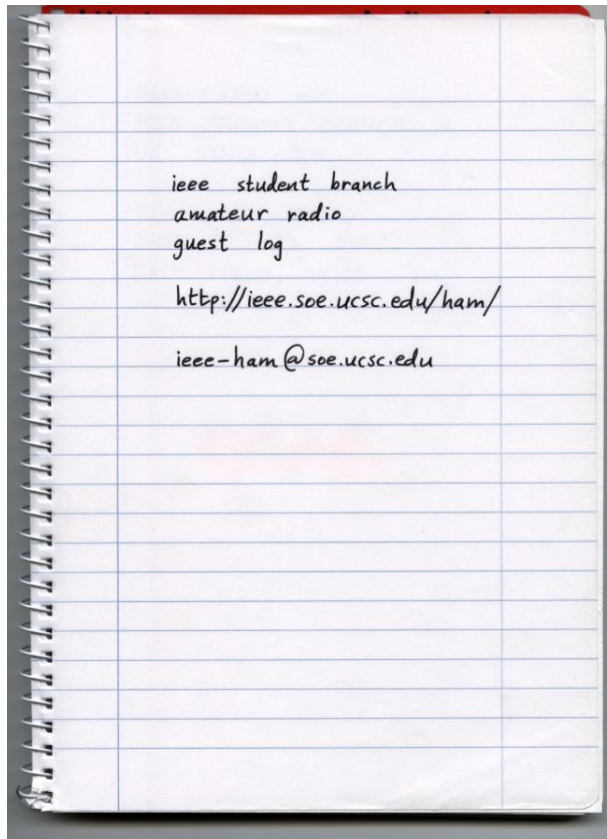 ieee student branch
amateur radio
guest log
http://ieee.soe.ucsc.edu/ham/
ieee-ham@soe.ucsc.edu